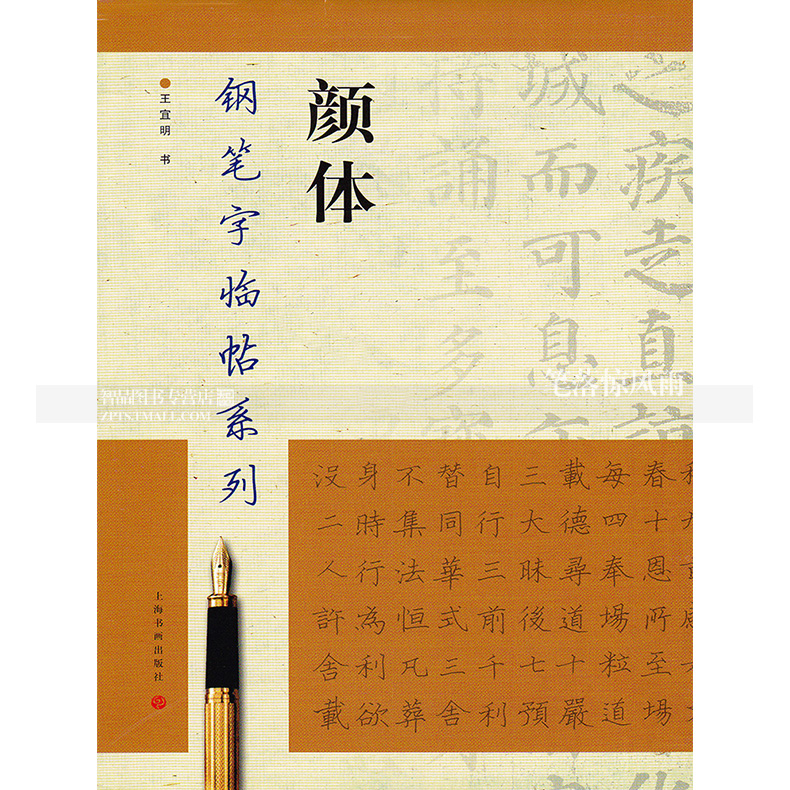 颜体
钢笔字临帖系列
王宜明 书
之疾走真
城而可息
持誦至多寶
春十恩所至場
每四奉場粒道
載德尋道十嚴
三大昧後七預
自行三前千利
替同華式三舍
不集法恒凡葬
身時行為利欲
沒二人許舍載
上海书画出版社
智品图书专营店
ZPTS.TMALL.COM
笔落惊风雨